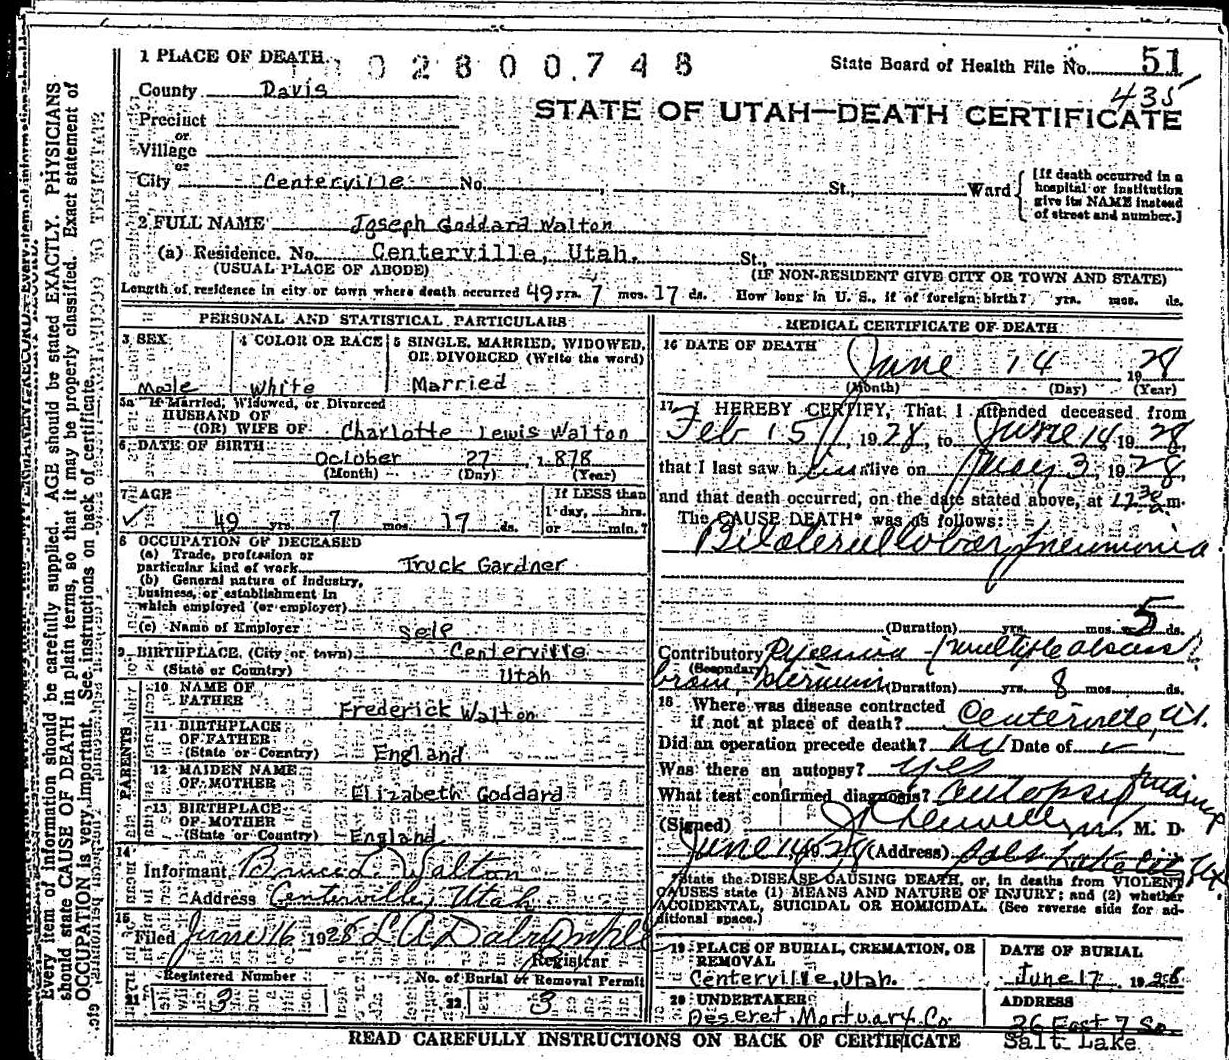 1 PLACE OF DEATH 02800748 State Board of Health File No. 51
435
County Davis
STATE OF UTAH—DEATH CERTIFICATE
Precinct
or
Village
or
City Centerville No. , St., Ward
[If death occurred in a hospital or institution give its NAME instead of street and number.]
2 FULL NAME Joseph Goddard Walton
(a) Residence. No. Centerville, Utah. St.,
(USUAL PLACE OF ABODE) (IF NON-RESIDENT GIVE CITY OR TOWN AND STATE)
Length of residence in city or town where death occurred 49 yrs. 7 mos. 17 ds. How long in U. S., if of foreign birth? yrs. mos. ds.
PERSONAL AND STATISTICAL PARTICULARS
3 SEX
Male
4 COLOR OR RACE
White
5 SINGLE, MARRIED, WIDOWED, OR DIVORCED (Write the word)
Married
5a If Married, Widowed, or Divorced
HUSBAND OF
(OR) WIFE OF Charlotte Lewis Walton
6 DATE OF BIRTH
October 27 1878
(Month) (Day) (Year)
7 AGE
49 yrs. 7 mos. 17 ds.
If LESS than
1 day, hrs.
or min.?
8 OCCUPATION OF DECEASED
(a) Trade, profession or
particular kind of work Truck Gardner
(b) General nature of industry,
business, or establishment in
which employed (or employer)
(c) Name of Employer self
9 BIRTHPLACE (City or town) Centerville
(State or Country) Utah
PARENTS
10 NAME OF
FATHER Frederick Walton
11 BIRTHPLACE
OF FATHER
(State or Country) England
12 MAIDEN NAME
OF MOTHER Elizabeth Goddard
13 BIRTHPLACE
OF MOTHER
(State or Country) England
14
Informant Bruce L. Walton
Address Centerville, Utah
15
Filed June 16 1928 L A Dalrymple
Registrar
Registered Number
21 3
No. of Burial or Removal Permit
22 3
MEDICAL CERTIFICATE OF DEATH
16 DATE OF DEATH
June 14 1928
(Month) (Day) (Year)
17 I HEREBY CERTIFY, That I attended deceased from
Feb 15, 1928, to June 14 1928,
that I last saw him alive on May 3, 1928
and that death occurred, on the date stated above, at 12 30 a m.
The CAUSE DEATH* was as follows:
Bilateral lobar pneumonia
(Duration) yrs. mos. 5 ds.
Contributory Pyemia - (multiple abscess
(Secondary)
brain, sternum (Duration) yrs. 8 mos. ds.
18 Where was disease contracted
if not at place of death? Centerville, Ut.
Did an operation precede death? no Date of
Was there an autopsy? yes
What test confirmed diagnosis? autopsy findings
(Signed) , M. D.
June 14 1928 (Address) Salt Lake City Ut.
*State the DISEASE CAUSING DEATH, or, in deaths from VIOLENT
CAUSES state (1) MEANS AND NATURE OF INJURY; and (2) whether
ACCIDENTAL, SUICIDAL OR HOMICIDAL. (See reverse side for additional space.)
19 PLACE OF BURIAL, CREMATION, OR
REMOVAL
Centerville, Utah.
DATE OF BURIAL
June 17 1928
20 UNDERTAKER
Deseret Mortuary Co
ADDRESS
36 East 7 So.
Salt Lake
READ CAREFULLY INSTRUCTIONS ON BACK OF CERTIFICATE
Every item of information should be carefully supplied. AGE should be stated EXACTLY. PHYSICIANS
should state CAUSE OF DEATH in plain terms, so that it may be properly classified. Exact statement of
OCCUPATION is very important. See instructions on back of certificate.